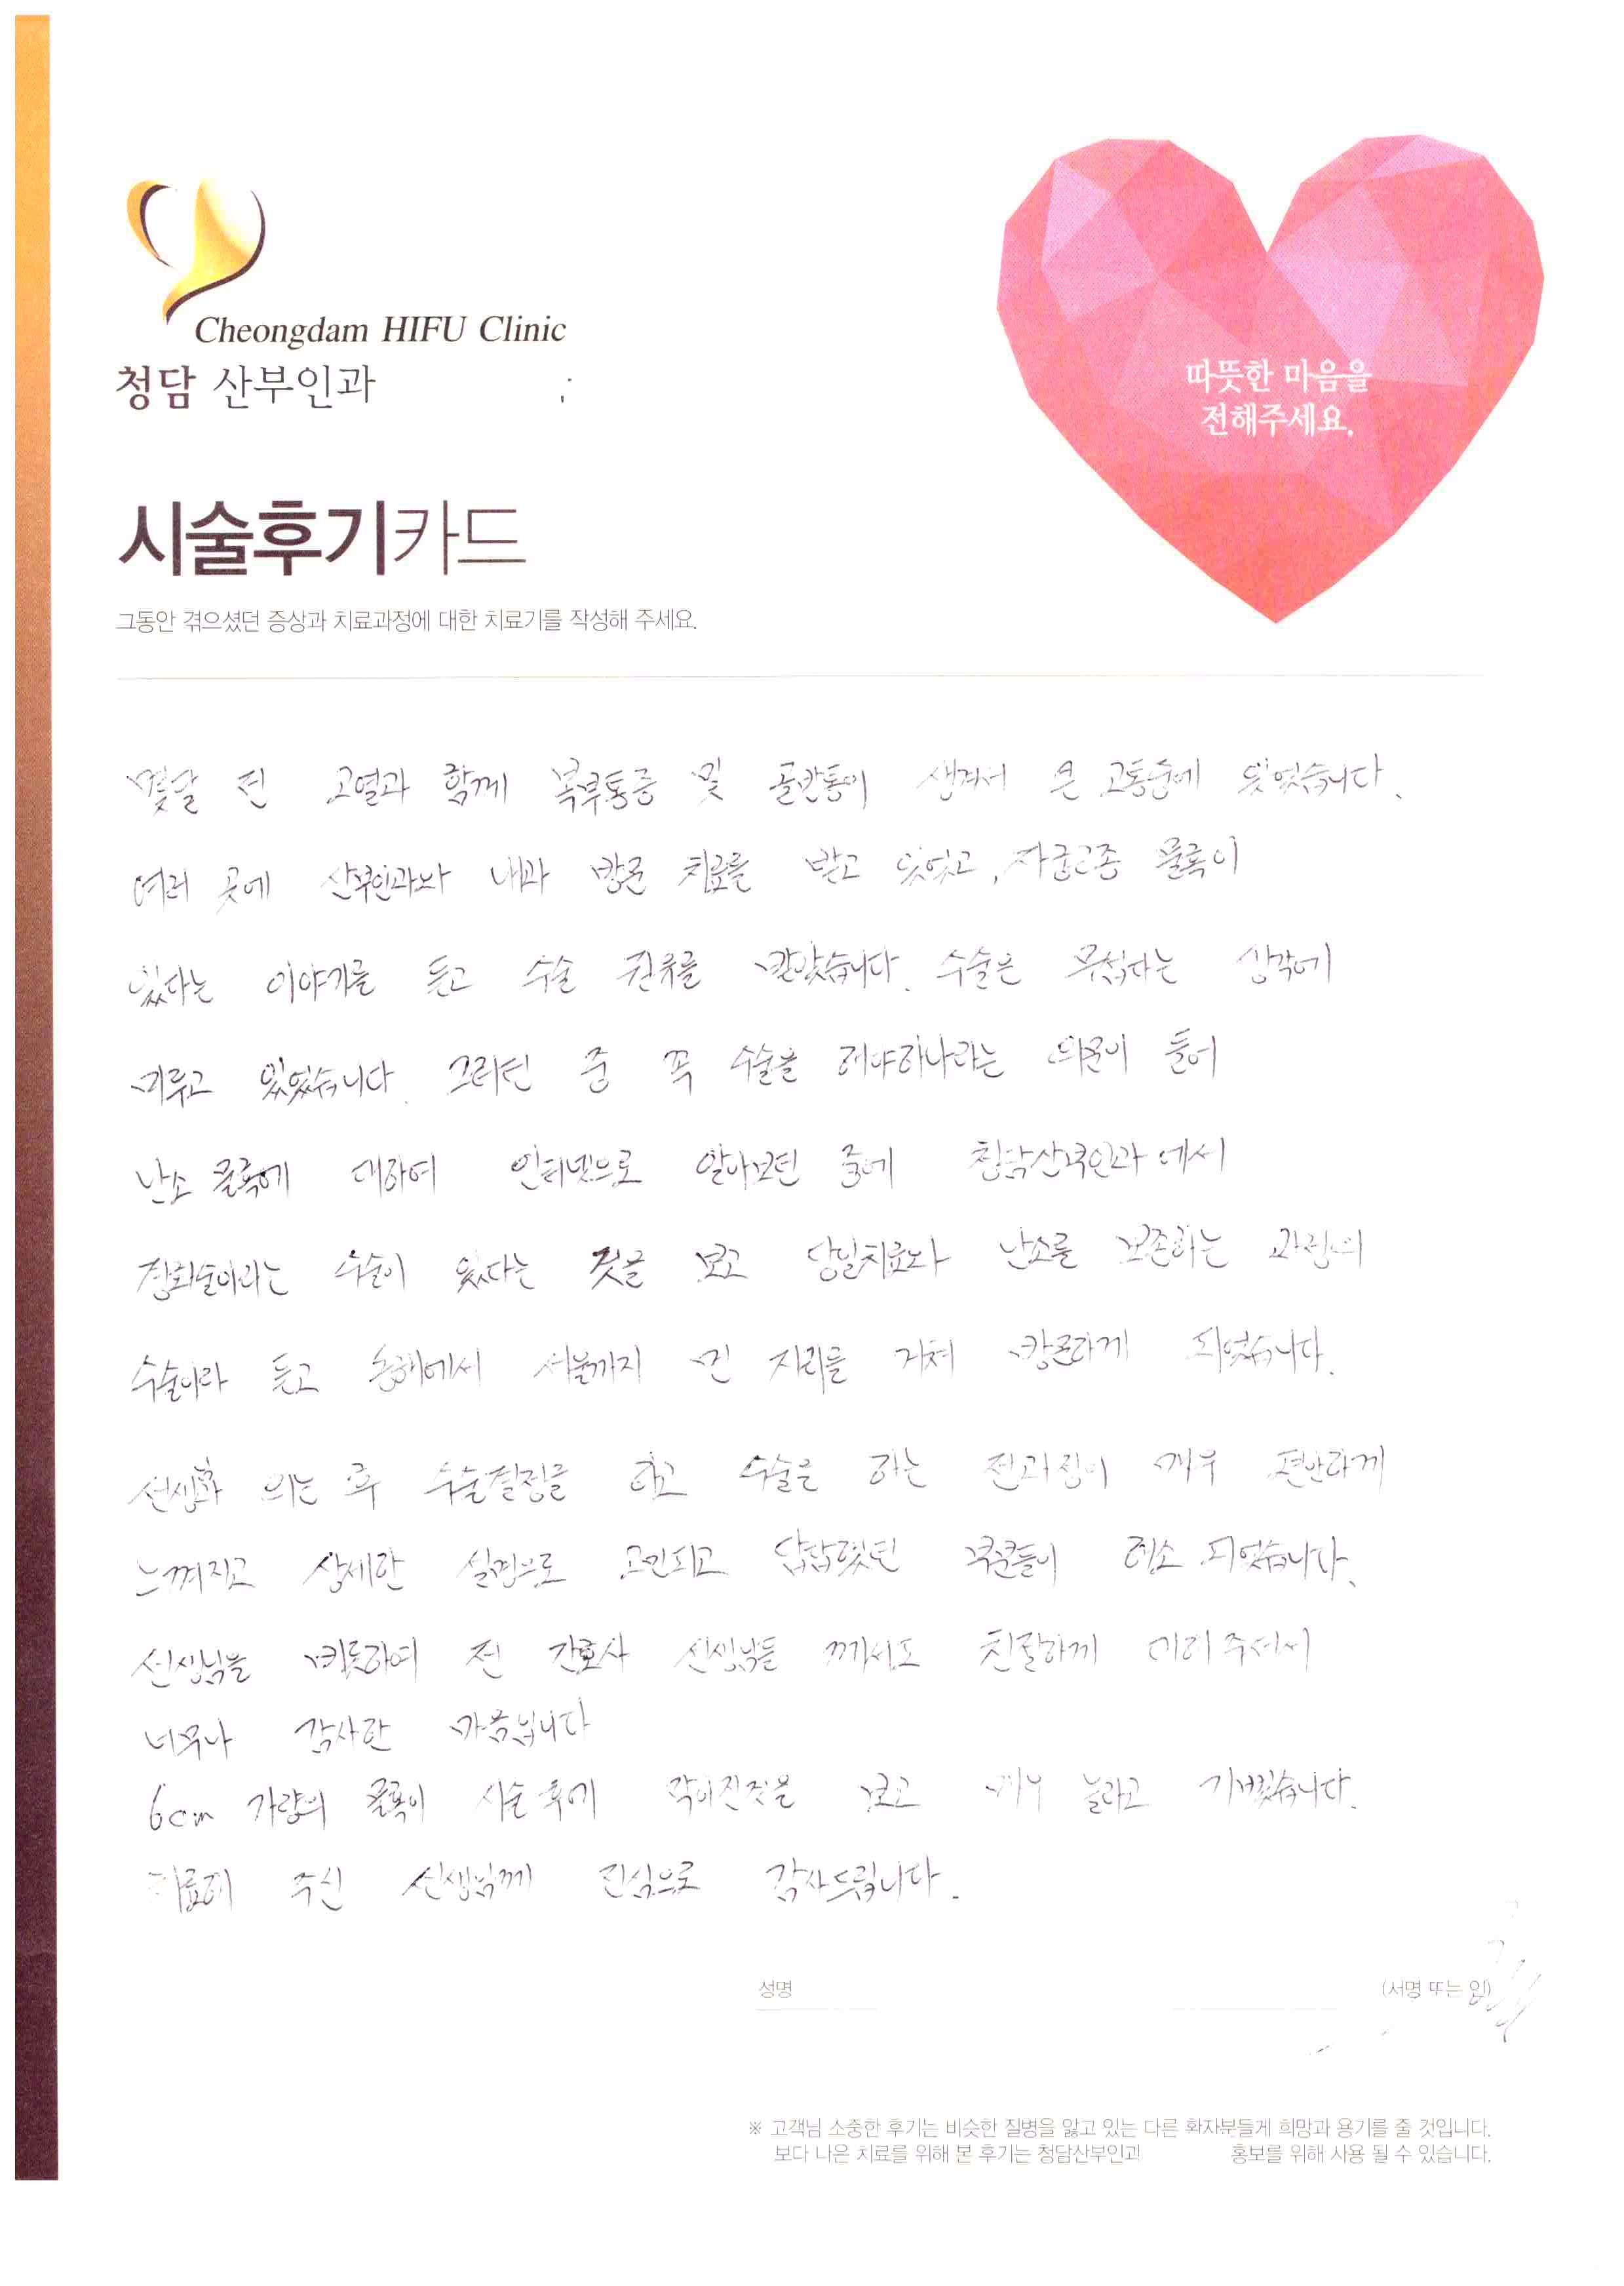 Cheongdam HIFU Clinic
청담 산부인과
따뜻한 마음을
전해주세요.
시술후기카드
그동안 겪으셨던 증상과 치료과정에 대한 치료기를 작성해 주세요.
몇달 전 고열과 함께 복부통증 및 골반통이 생겨서 큰 고통중에 있었습니다.
여러 곳에 산부인과와 내과 방문 치료를 받고 있었고, 자궁근종 물혹이
있다는 이야기를 듣고 수술 권유를 받았습니다. 수술은 무섭다는 생각에
미루고 있었습니다. 그러던 중 꼭 수술을 해야하나라는 의문이 들어
난소 물혹에 대하여 인터넷으로 알아보던 중에 청담산부인과에서
경화술이라는 수술이 있다는 것을 보고 당일치료와 난소를 보존하는 과정의
수술이라 듣고 서울까지 먼 거리를 거쳐 방문하게 되었습니다.
선생님과 의논 후 수술결정을 하고 수술을 하는 전과정이 매우 편안하게
느껴지고 상세한 설명으로 고민되고 답답했던 부분들이 해소 되었습니다.
선생님을 비롯하여 전 간호사 선생님들 께서도 친절하게 대해 주셔서
너무나 감사한 마음입니다
6cm 가량의 물혹이 시술 후에 작아진것을 보고 매우 놀라고 기뻤습니다.
치료해 주신 선생님께 진심으로 감사드립니다.
성명 (서명 또는 인)
※ 고객님 소중한 후기는 비슷한 질병을 앓고 있는 다른 환자분들게 희망과 용기를 줄 것입니다.
보다 나은 치료를 위해 본 후기는 청담산부인과 홍보를 위해 사용 될 수 있습니다.